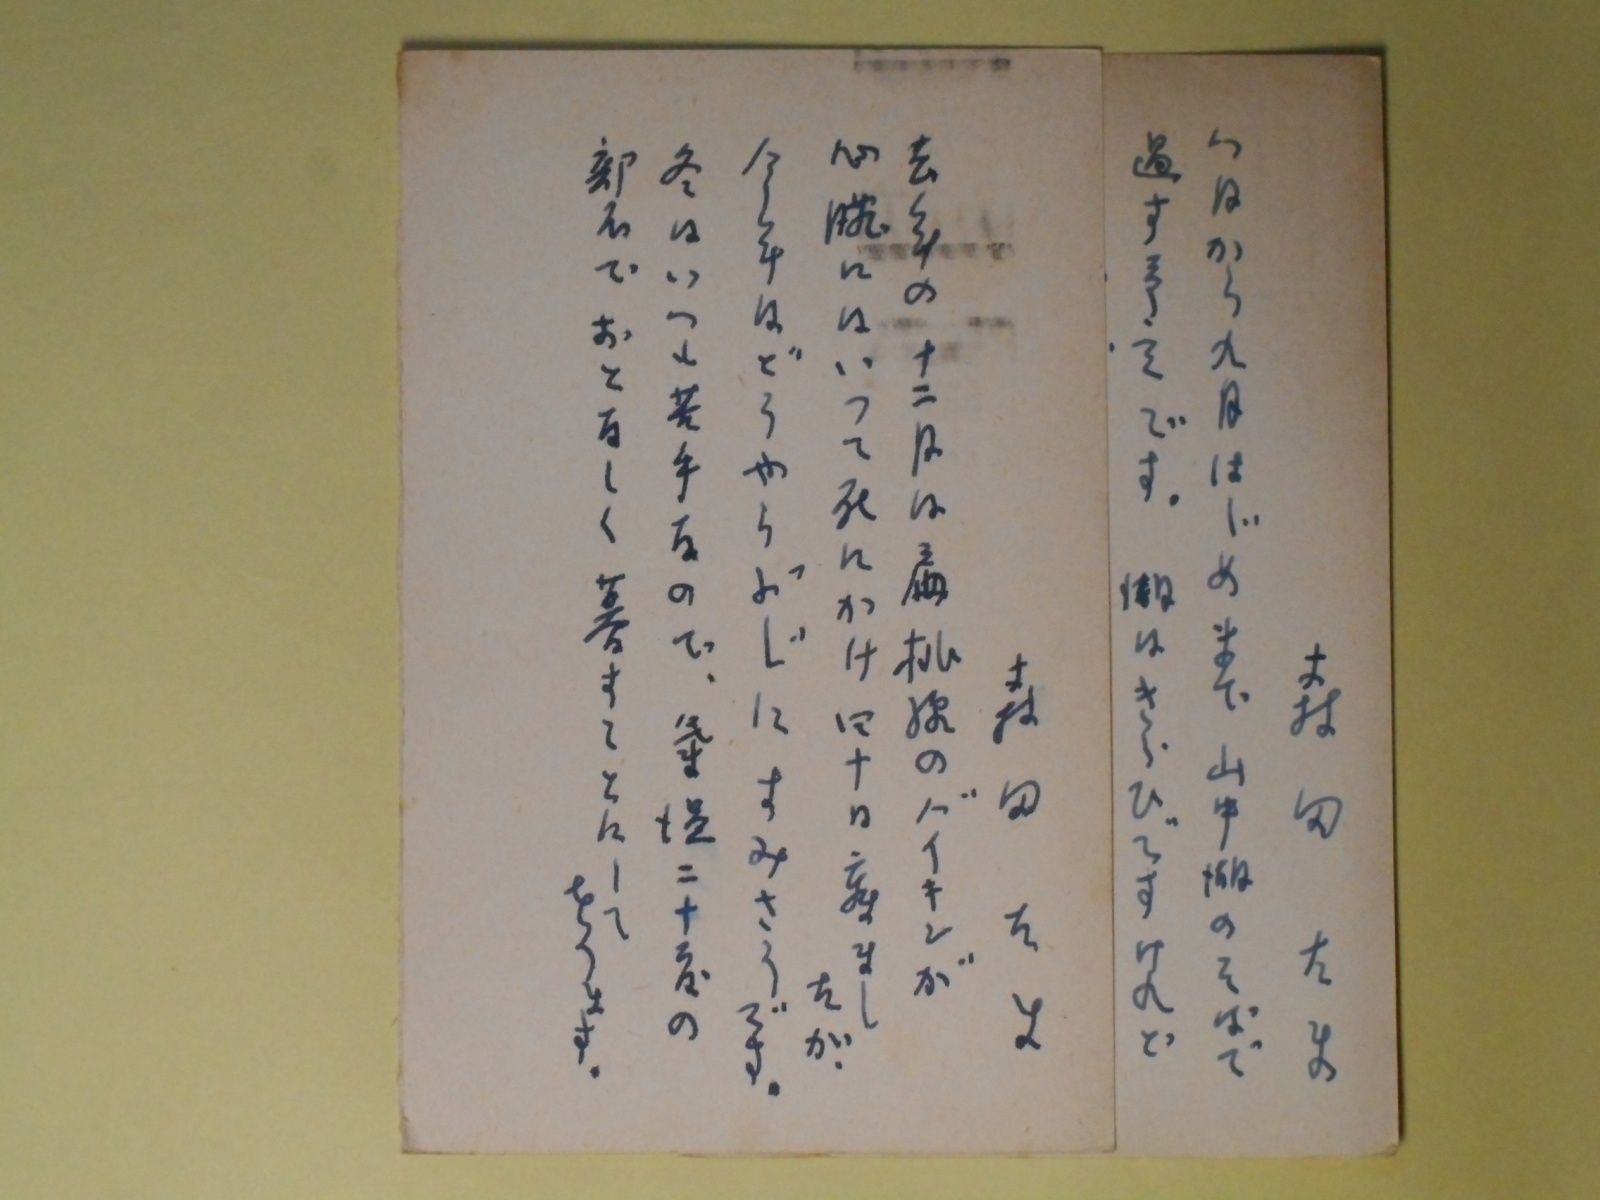 森田たま
八月から九月はじめまで山中湖のそばで
過す予定です。湖はきらひですけれど
森田たま
去年の十二月は扁桃腺のバイキンが
心臓にはいつて死にかけ四十日寝まし
たが、
今年はどうやらぶじにすみさうです。
冬はいつも苦手なので、温二十度の
部屋でおとなしく暮すことにして
をります。